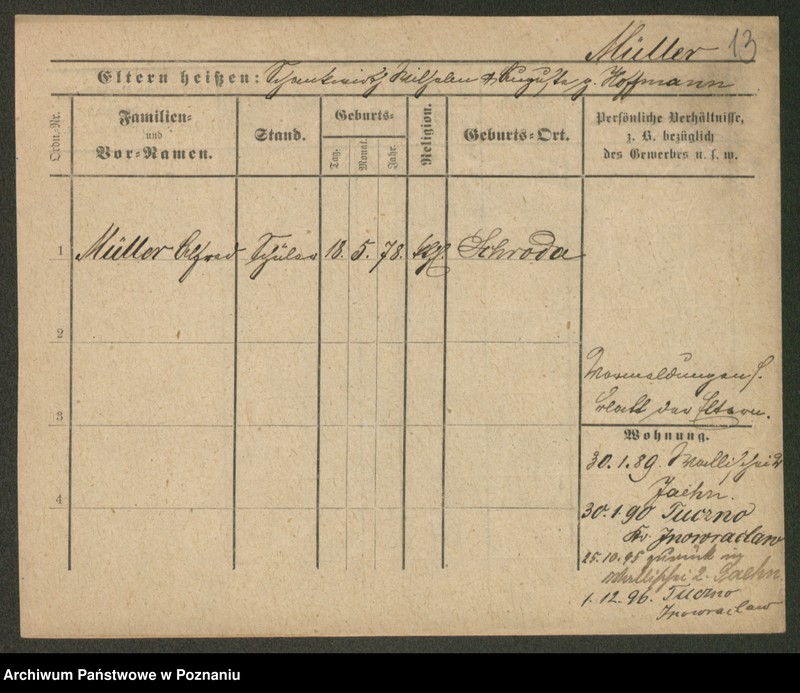 Müller 13
Eltern heißen: Schankwirth Wilhelm & Auguste g. Hoffmann
Ordn.-Nr.
Familien-
und
Vor-Namen.
Stand.
Geburts-
Tag.
Monat.
Jahr.
Religion.
Geburts-Ort.
Persönliche Verhältnisse,
z. B. bezüglich
des Gewerbes u. s. w.
1 Müller Alfred Schüler 18. 5. 78. Schroda
2
3
4
Vormeldungen s.
Blatt der Eltern.
Wohnung.
30. 1. 89. Wallischei 2
Jaehn.
30. 1. 90 Tuczno
Kr. Inowraclaw
15. 10. 95 zurück in
Wallischei 2. Jaehn.
1. 12. 96. Tuczno
Inowraclaw
Archiwum Państwowe w Poznaniu